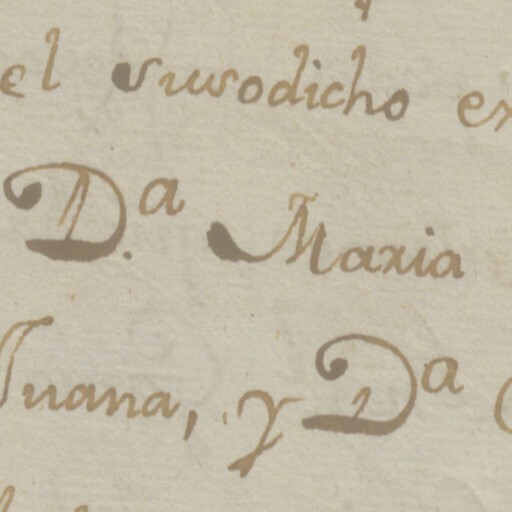 el susodicho
D.ª Maria
Juana, y Dª